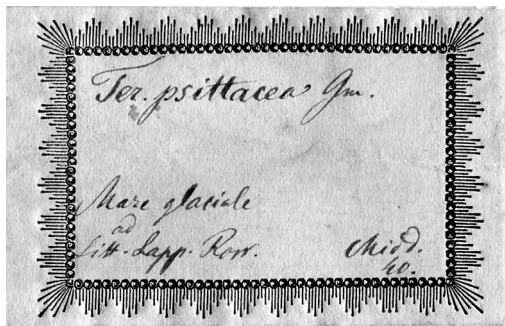 Ter. psittacea Gm.
Mare glaciale
ad
Litt. Lapp. Ross.
Midd.
40.